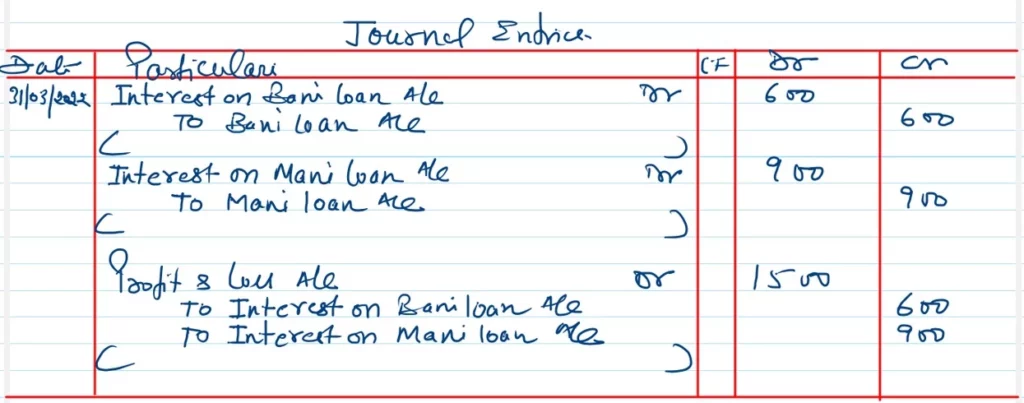 Journal Entries
Date Particulars LF Dr Cr
31/03/2022 Interest on Bani loan A/c Dr 600
To Bani loan A/c 600
( )
Interest on Mani loan A/c Dr 900
To Mani loan A/c 900
( )
Profit & Loss A/c Dr 1500
To Interest on Bani loan A/c 600
To Interest on Mani loan A/c 900
( )